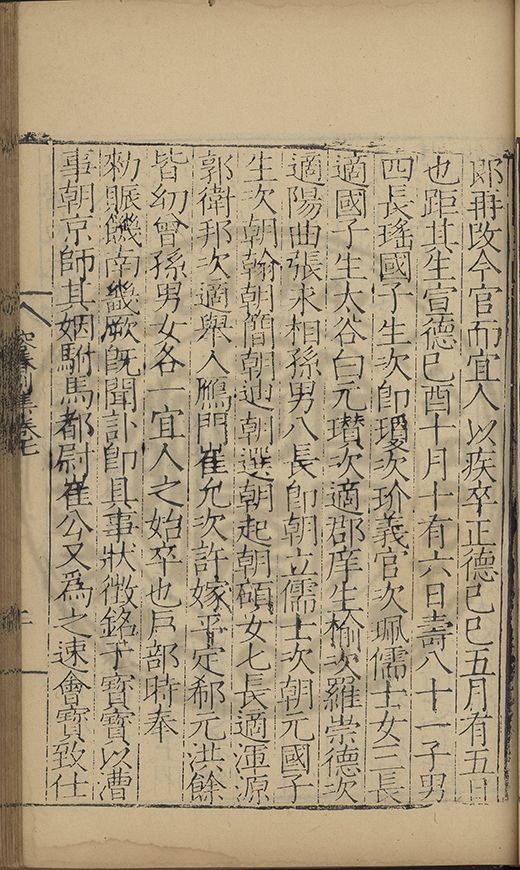 郎再改今官而宜人以疾卒正德己巳五月有五日
也距其生宣德己酉十月十有六日壽八十一子男
四長瑤國子生次即瓊次玠義官次珮儒士女三長
適國子生大谷白元瓚次適郡庠生榆次羅崇德次
適陽曲張求相孫男八長即朝立儒士次朝元國子
生次朝翰朝簡朝迎朝選朝起朝碩女七長適渾源
郭衛邦次適舉人鴈門崔允次許嫁平定郗元洪餘
皆幼曾孫男女各一宜人之始卒也戶部時奉
勑賑饑南畿厥旣聞訃即具事狀徵銘于寶寶以漕
事朝京師其姻駙馬都尉崔公又爲之速會寶致仕
容春 集卷七